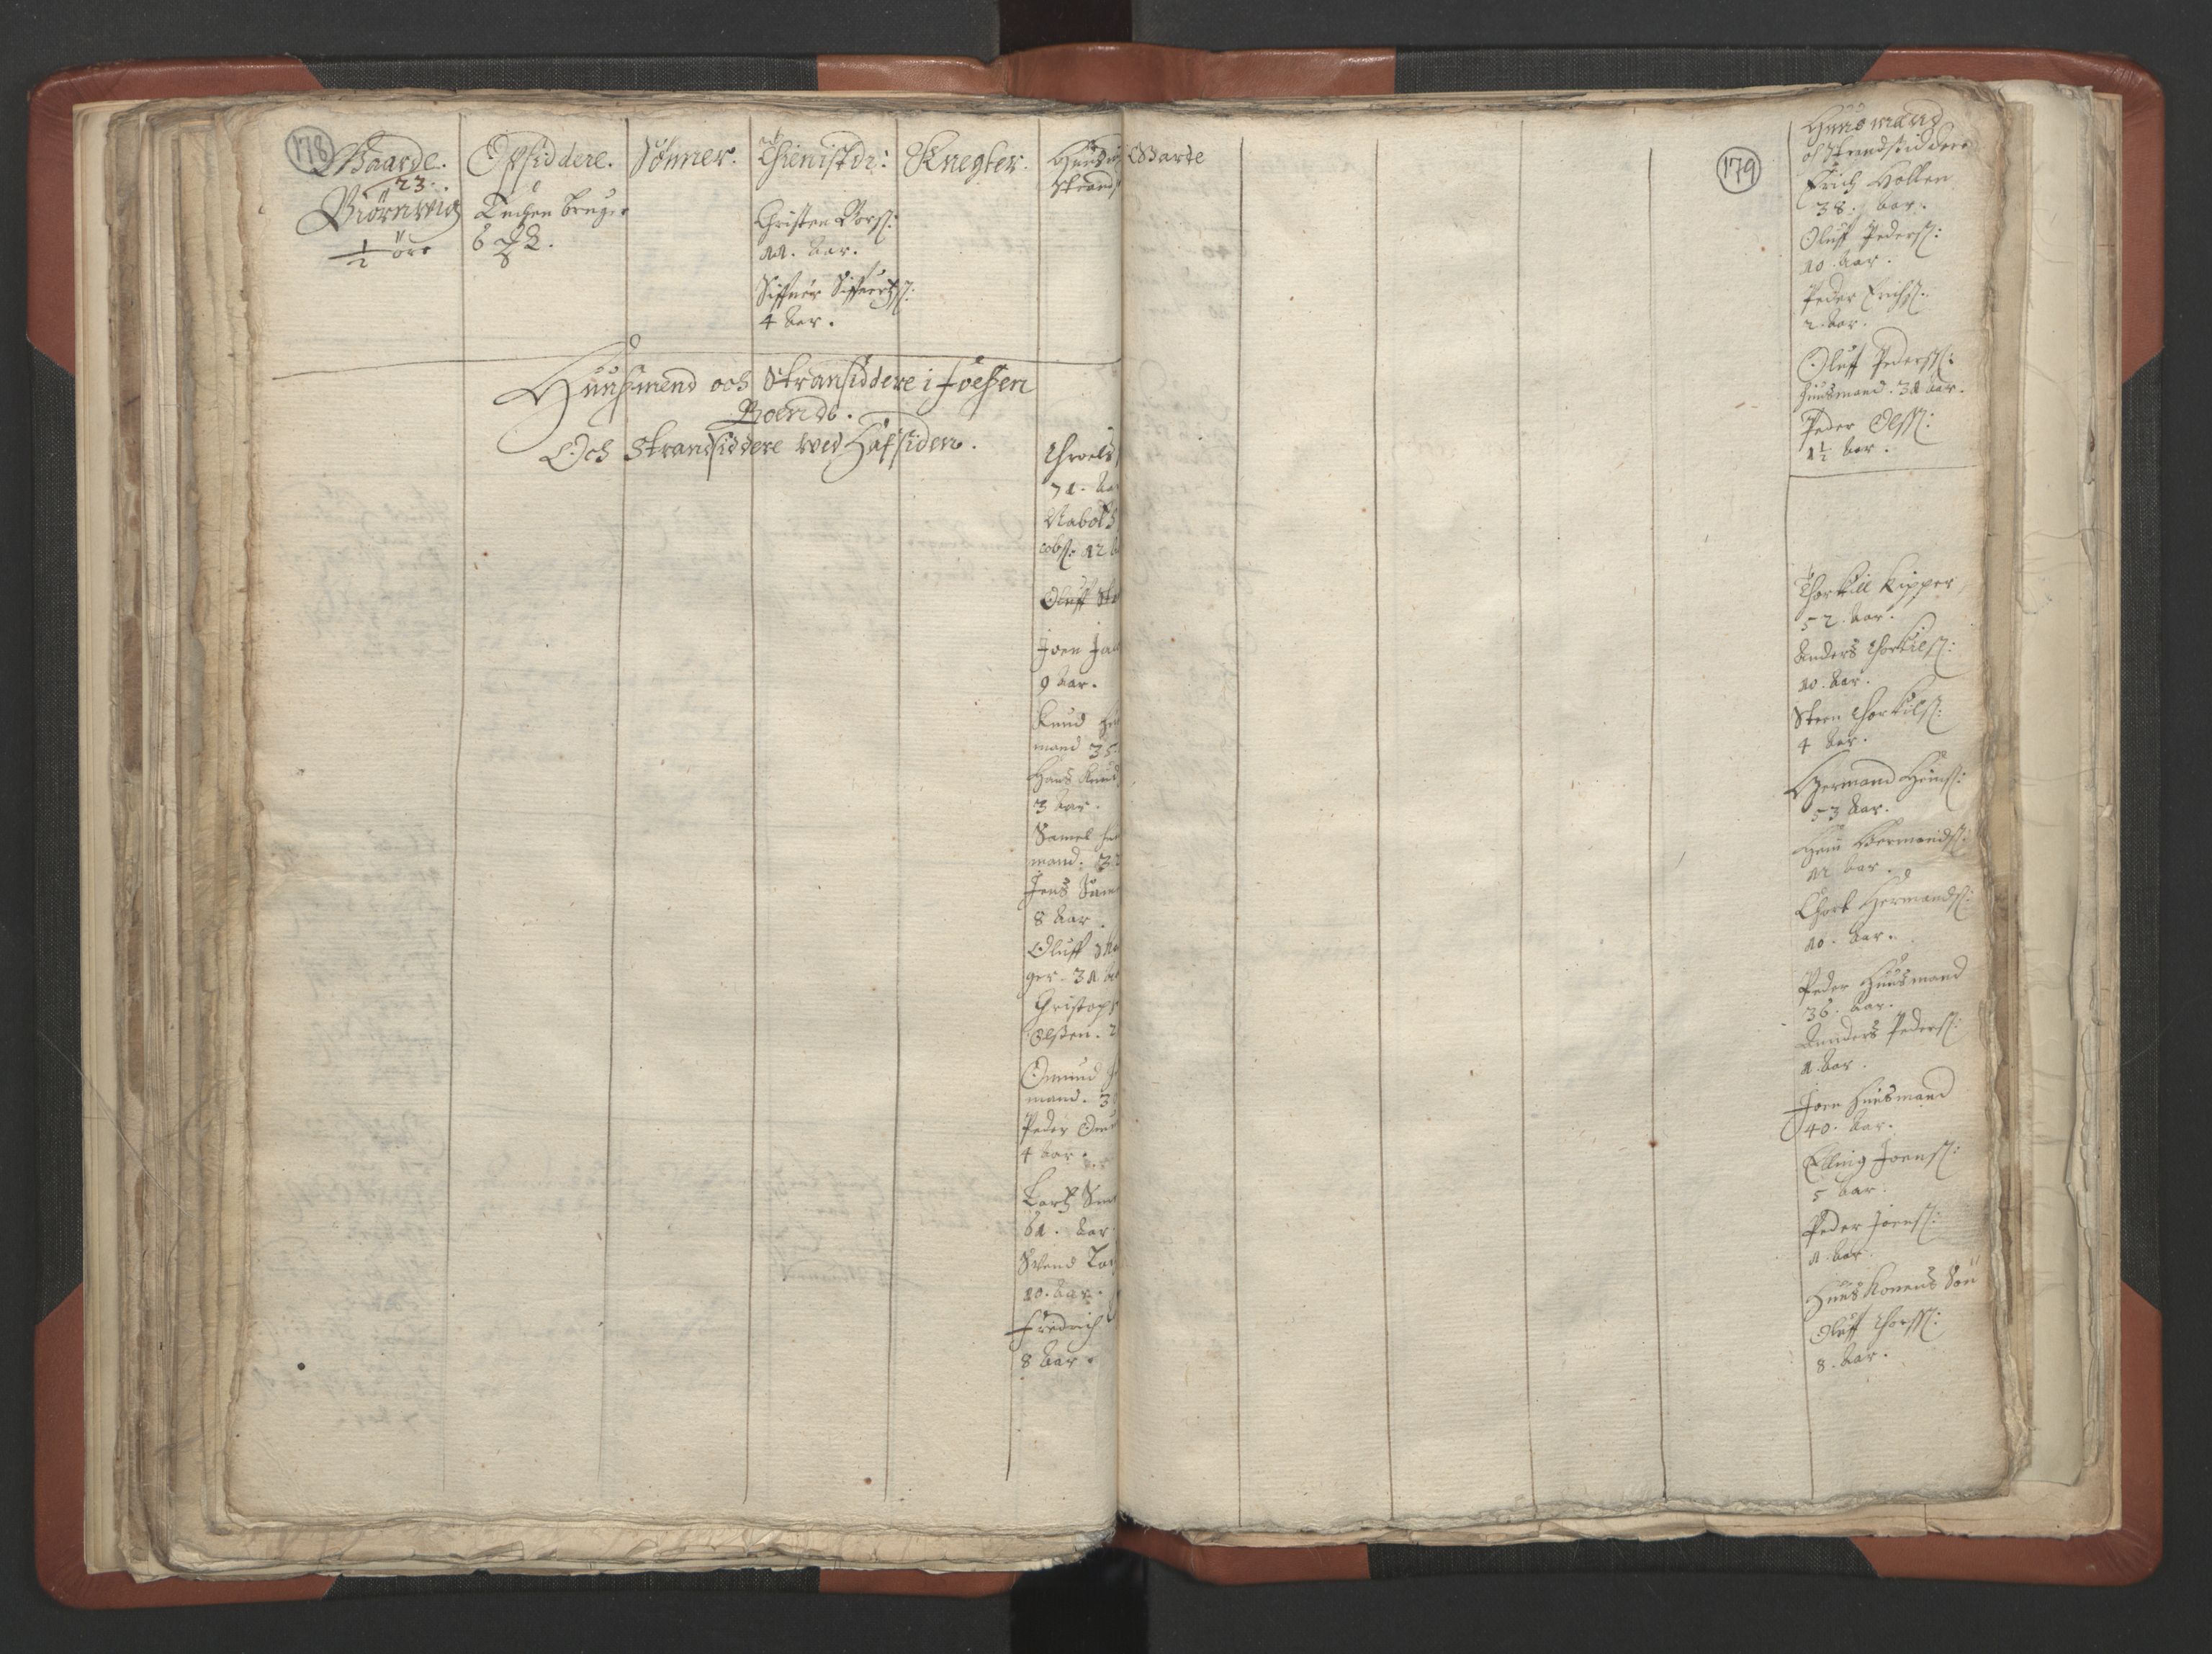 178
Gaarde.
23.
Biörnwig
1/2 öre
Opsiddere.
Enchen bruger
Sönner.
Thienistdr:
Christen Lorss:
11. Aar.
Siffuer Siffuertss:
4 Aar.
Knegter.
Huusm
Strands
Huuszmend och Stransiddere i Foeszen
Och Strandsiddere wed Hafsiden.
Throels
71. Aa
cobss: 12 A
Oluff Str
Joen Jac
9 Aar.
Knud Huu
mand 35
Hans Knud
3 Aar.
Samel Huu
mand. 3
Jens Sam
8 Aar
Oluff
ger. 31. Aa
Christoph
Olszen. 2
Omund H
mand. 3
Peder Om
4 Aar.
61. Aar
Svend La
10. Aar.
Fredrich
8 Aar.
Gaarde
179
Huusmænd
och Strandsiddere
Erich Hollen
38. Aar.
Oluff Pederss:
10. Aar.
Peder Erichss:
2. Aar.
Oluff Pederss:
Huusmand. 31 Aar.
Peder Olss:
1 1/2 Aar.
Thorkill Kipper
52. Aar.
Anders Thorkilss:
10. Aar.
Steen Thorkilss:
4 Aar.
Hermand Heinss:
53 Aar.
Hein Hermandss:
12 Aar.
Hermandss:
10. Aar.
Peder Huusmand
36. Aar.
Anders Pederss:
1. Aar.
Joen Huusmand
40. Aar.
Elling Joenss:
5 Aar.
Peder Joenss:
1. Aar
Huus Konens Sön
Oluff Thorss:
8. Aar.